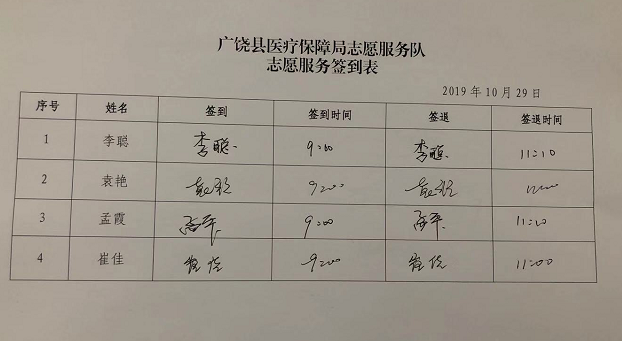 广饶县医疗保障局志愿服务队
志愿服务签到表
2019年10月29日
序号 姓名 签到 签到时间 签退 签退时间
1 李聪 李聪 9:00 李聪 11:10
2 袁艳 9:00
3 孟霞 9:00
4 崔佳 9:00 11:00